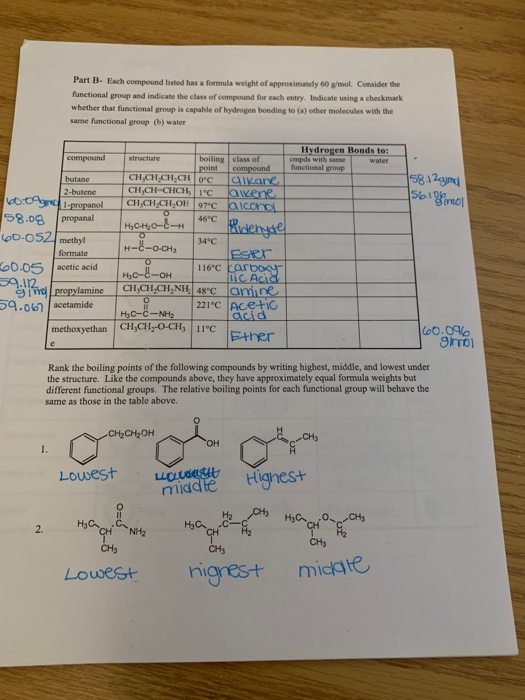 Part B- Each compound listed has a formula weight of approximately 60 g/mol. Consider the
functional group and indicate the class of compound for each entry. Indicate using a checkmark
whether that functional group is capable of hydrogen bonding to (a) other molecules with the
same functional group (b) water
Hydrogen Bonds to:
compound structure boiling point class of compound cmpds with same functional group water
butane CH₃CH₂CH₂CH 0°C alkane 58.12g/mol
2-butene CH₃CH=CHCH₃ 1°C alkene 56.106 g/mol
60.09g/mol 1-propanol CH₃CH₂CH₂OH 97°C alcohol
58.08 propanal H₃CH₂C-C-H O 46°C Aldehyde
60.052 methyl formate H-C-O-CH₃ O 34°C Ester
60.05 acetic acid H₃C-C-OH O 116°C carboxylic Acid
59.112 g/mol propylamine CH₃CH₂CH₂NH₂ 48°C amine
59.067 acetamide H₃C-C-NH₂ O 221°C Acetic acid
methoxyethane CH₃CH₂-O-CH₃ 11°C Ether 60.096 g/mol
Rank the boiling points of the following compounds by writing highest, middle, and lowest under
the structure. Like the compounds above, they have approximately equal formula weights but
different functional groups. The relative boiling points for each functional group will behave the
same as those in the table above.
1. CH₂CH₂OH O OH H C C H CH₃
Lowest middle Highest
2. H₃C CH CH₃ O C NH₂ H₃C CH CH₃ H₂ C C H₂ CH₃ H₃C CH CH₃ O C H₂ CH₃
Lowest highest middle